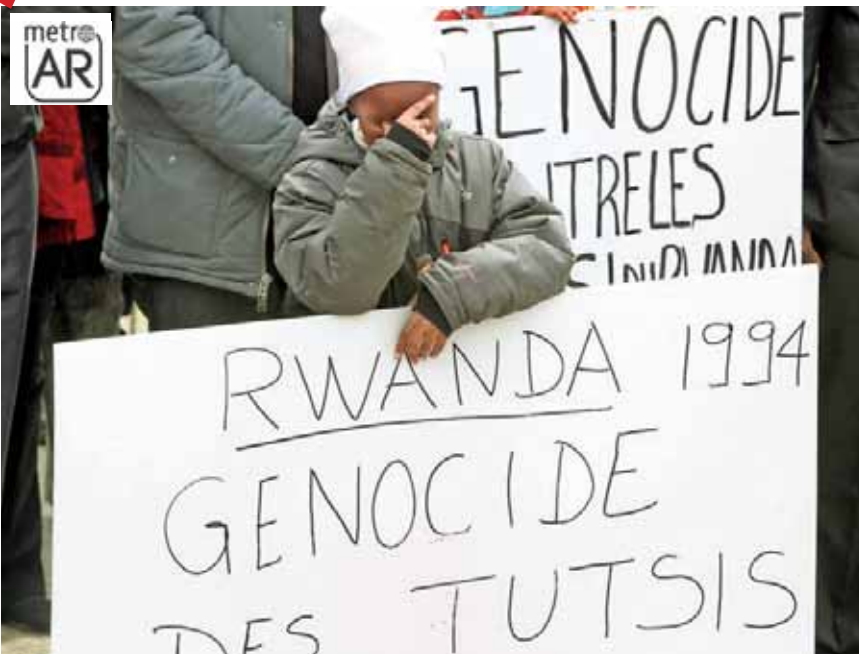 metro
AR
GENOCIDE
TRELES
RWANDA 1994
GENOCIDE
DES TUTSIS